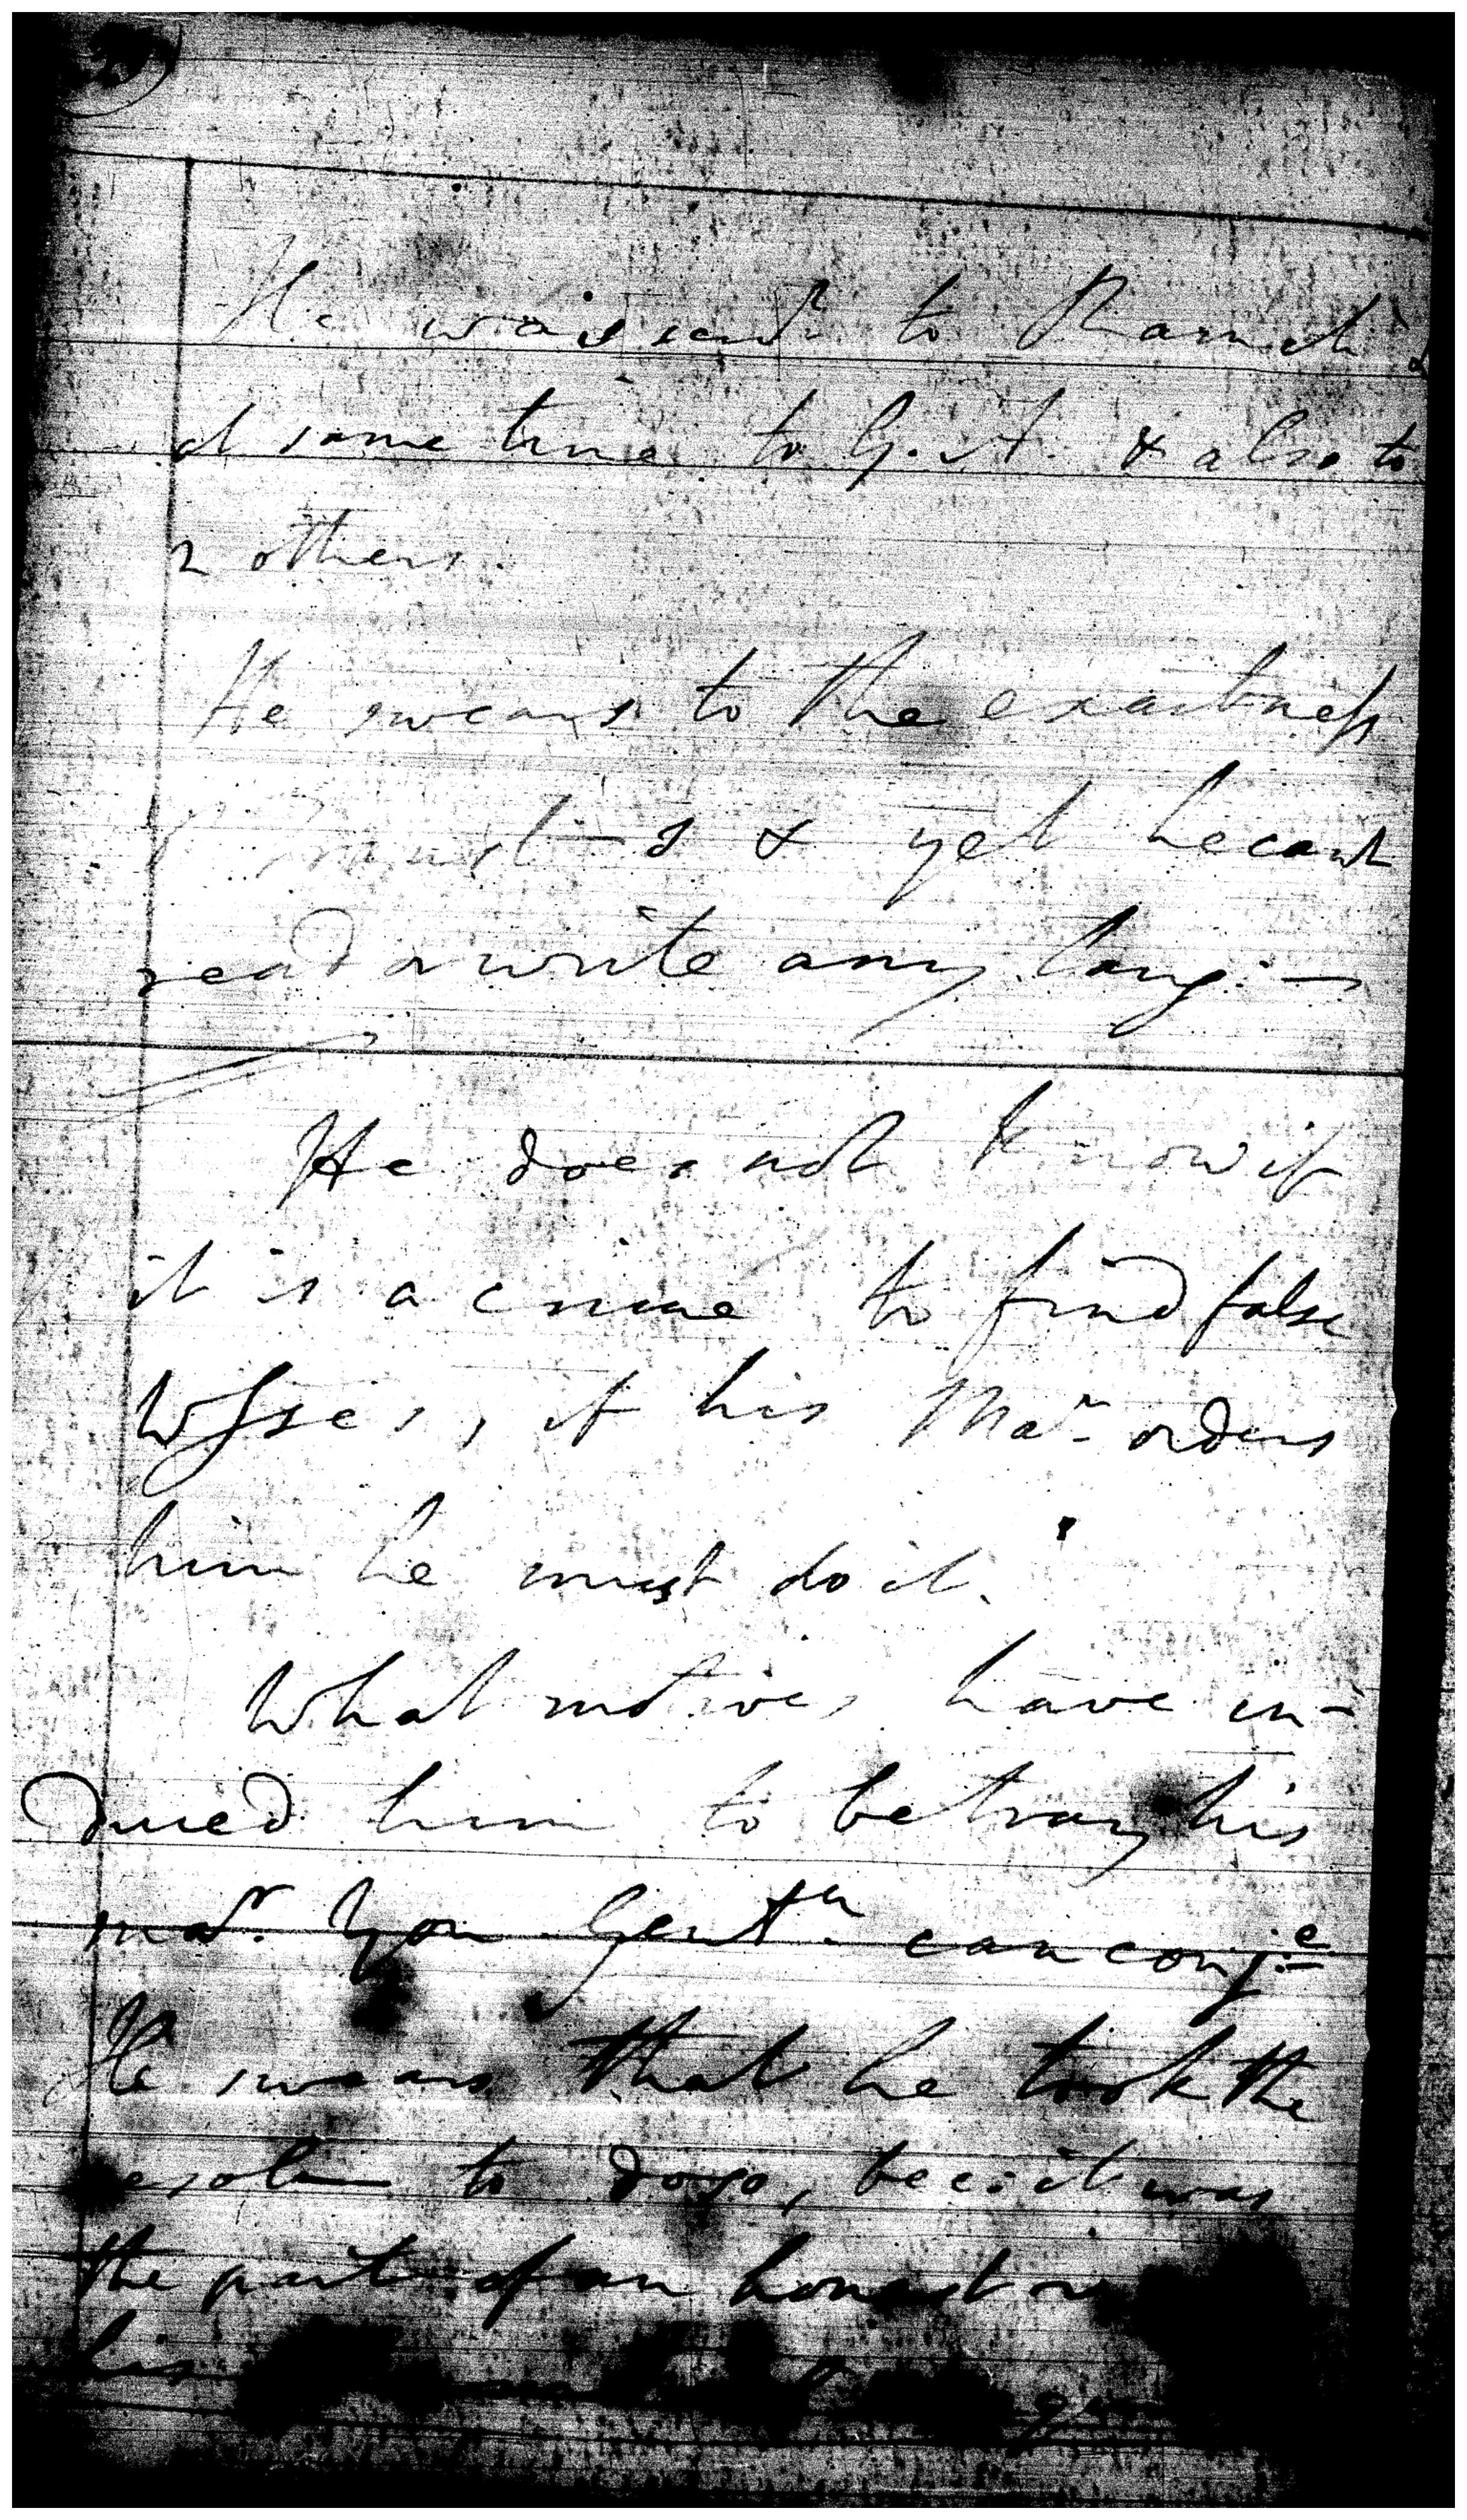 He was sent to Ramch
at same time to G. A. & also to
2 others.
He swears to the exactness
& yet he cant
read or write any lang: —
He does not know if
it is a crime to find false
Wsses, if his Mar orders
him he must do it.
What motives have in-
duced him to betray his
mar. You Gentn can conje
He swears that he took the
to do so, bec: it was
the part of an honest
his